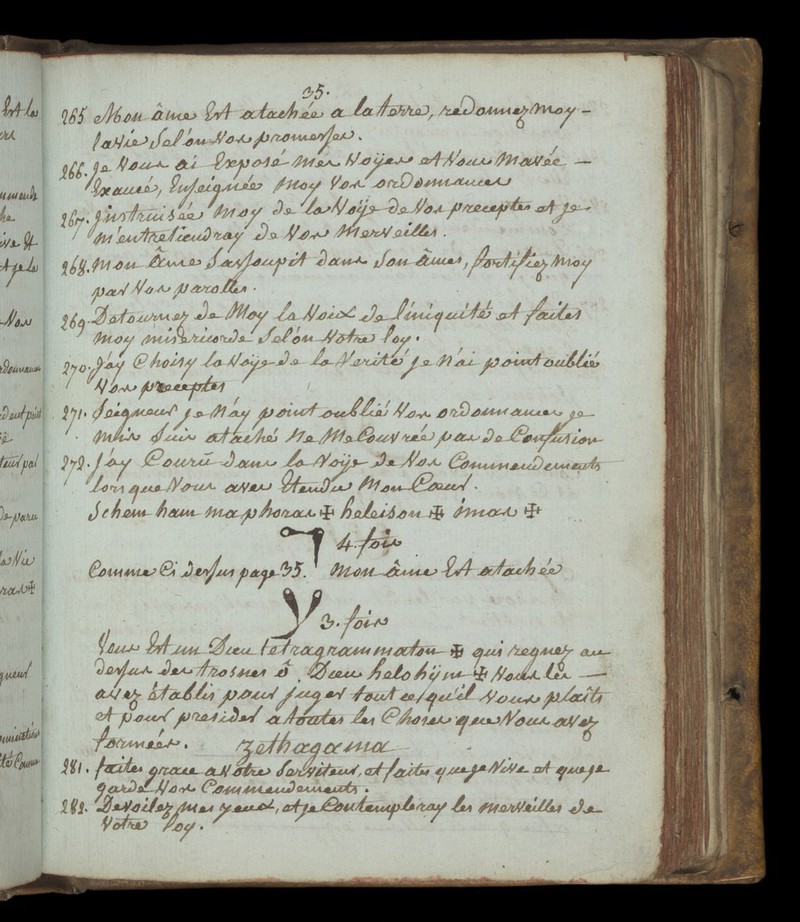 35.
265 Mon âme Est atachée a la terre, redonnez moy -
la vie Sel'on Vos promesses.
266. Je Vous ai Exposé Mes Voÿes et Vous M'avée -
Exaucé, Enseignée Moy Vos ordonnances
267. Jnstruisée Moy de la Voÿe de Vos preceptes et je
m'entretiendray de Vos Merveilles.
268. Mon âme S'assoupit dans Son âmes, fortifiez Moy
par Vos parolles.
269. Detournez de Moy la Voix de l'iniquité et faites
moy misericorde Sel'on Votre loy.
270. J'ay Choisy la Voÿe de la Verité je N'ai point oublié
Vos preceptes
271. Seigneur je N'ay point oublié Vos ordonnances je
m'is Suis ataché Ne Me Couvrée pas de Confusion
272. J'ay Couru dans la Voÿe de Vos Commendements
lors que Vous aves Etendu Mon Cœur.
Schem ham maphoras ✠ heleison ✠ imas ✠
ד 4. fois
Comme Ci dessus page 35. Mon âme Est atachée
ע 3. fois
Vous Est un Dieu tetragrammaton ✠ qui regnez au
dessus des trosnes ô. Dieu helohÿm ✠ Vous les —
avez établis pour juger tout ce qu'il Vous plaîts
et pour presider a toutes les Choses que Vous avez
formées. Zethagama
281. faites grace a Votre Serviteur, et faites que je Vive et que je
garde Vos Commendements.
282. Devoilez mes yeux, et je Contempleray les merveilles de
Votre loy.